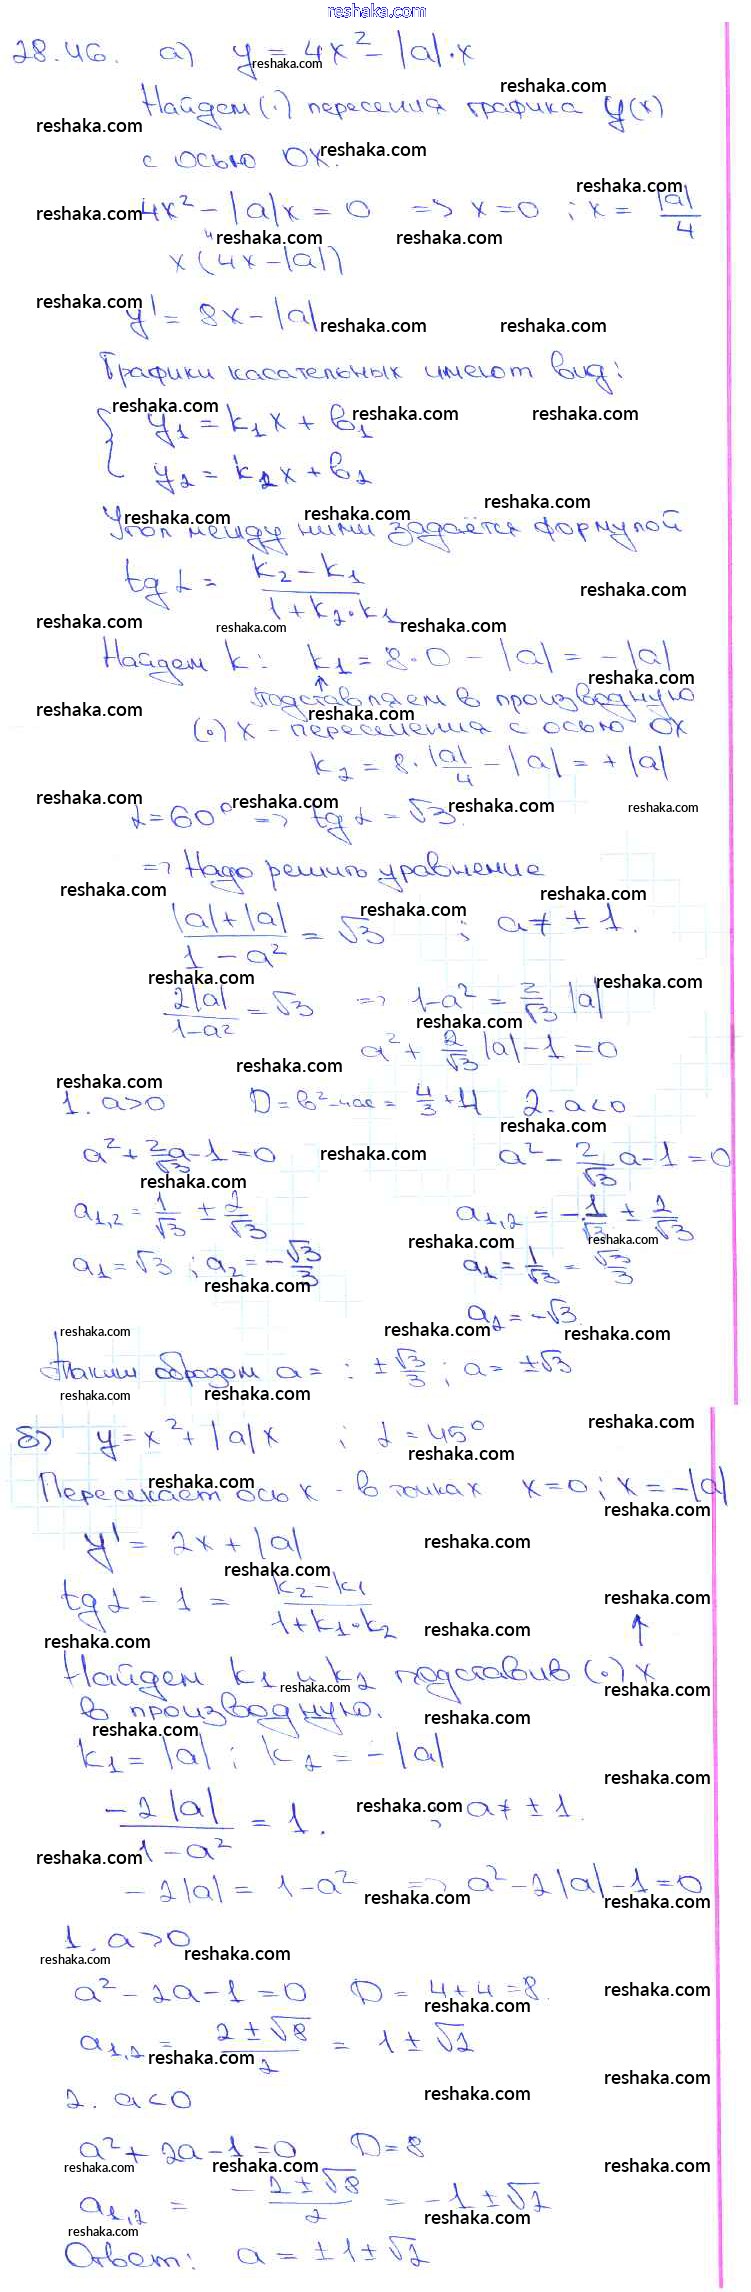 reshaka.com
28.46. а) y = 4x² - |a|·x
Найдем (·) пересения графика y(x)
с осью OX.
4x² - |a|x = 0 => x = 0 ; x = |a|/4
x(4x - |a|)
y' = 8x - |a|
Графики касательных имеют вид:
{ y₁ = k₁x + b₁
y₂ = k₂x + b₂
Угол между ними задаётся формулой
tg α = (k₂ - k₁)/(1 + k₂·k₁)
Найдем k: k₁ = 8·0 - |a| = -|a|
↑ подставляем в производную
(·) x - пересечения с осью OX
k₂ = 8·|a|/4 - |a| = +|a|
α = 60° => tg α = √3.
=> Надо решить уравнение
(|a| + |a|)/(1 - a²) = √3 ; a ≠ ±1.
2|a|/(1-a²) = √3 => 1-a² = 2/√3 |a|
a² + 2/√3 |a| - 1 = 0
1. a>0 D = b²-4ac = 4/3 + 4 2. a<0
a² + 2a/√3 - 1 = 0 a² - 2/√3 a - 1 = 0
a₁,₂ = 1/√3 ± 2/√3 a₁,₂ = -1/√3 ± 2/√3
a₁ = √3 ; a₂ = -√3/3 a₁ = 1/√3 = √3/3
a₂ = -√3.
Таким образом a = : ± √3/3 ; a = ±√3
б) y = x² + |a|x ; α = 45°
Пересекает ось x - в точках x = 0 ; x = -|a|
y' = 2x + |a|
tg α = 1 = (k₂ - k₁)/(1 + k₁·k₂) ↑
Найдем k₁ и k₂ подставив (·) x
в производную.
k₁ = |a| ; k₂ = -|a|
-2|a|/(1 - a²) = 1. , a ≠ ±1.
-2|a| = 1 - a² => a² - 2|a| - 1 = 0
1. a > 0
a² - 2a - 1 = 0 D = 4 + 4 = 8.
a₁,₂ = (2 ± √8)/2 = 1 ± √2
2. a < 0
a² + 2a - 1 = 0 D = 8
a₁,₂ = (-2 ± √8)/2 = -1 ± √2
Ответ: a = ±1 ± √2